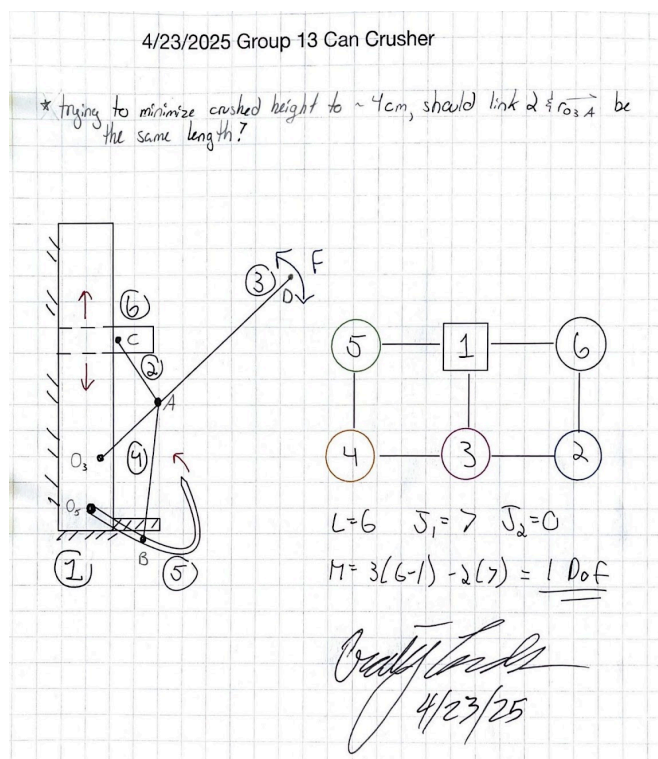 4/23/2025 Group 13 Can Crusher
* trying to minimize crushed height to ~ 4cm, should link 2 & r⃗O₃A be
the same length?
3
F
D
6
C
2
A
O₃
4
O₅
B
1
5
5 1 6
4 3 2
L=6 J₁=7 J₂=0
M= 3(6-1) -2(7) = 1 DoF
4/23/25